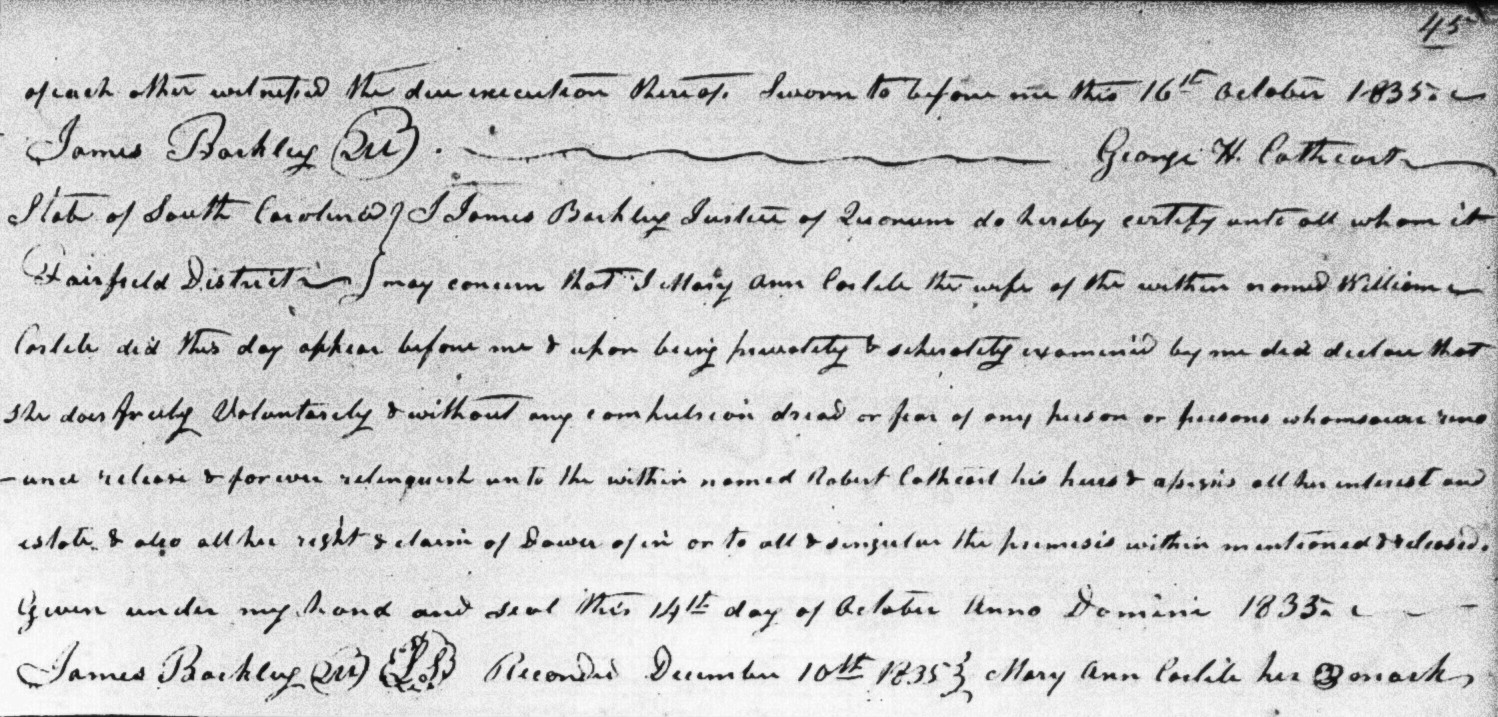 45
of each other witnessed the due execution thereof. Sworn to before me this 16th October 1835.
James Barkley (QU). George H. Cathcart
State of South Carolina } I James Barkley Justice of Quorum do hereby certify unto all whom it
Fairfield District } may concern that I Mary Ann Carlile the wife of the within named William
Carlile did this day appear before me & upon being privately & seperately examined by me did declare that
she does freely Voluntarily & without any compulsion dread or fear of any person or persons whomsoever reno
-unce release & forever relinquish unto the within named Robert Cathcart his heirs & assigns all her interest and
estate & also all her right & claim of Dower of in or to all & singular the premises within mentioned & released.
Given under my hand and seal this 14th day of October Anno Domini 1835.
James Barkley QU (L.S) Recorded December 10th 1835 } Mary Ann Carlile her mark,